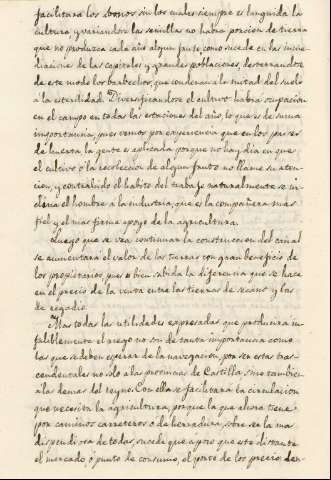 facilitara los abonos sin los cuales siempre es languida la
cultura y variandose las semillas no habra porcion de tierra
que no produzca cada año algun fruto como sucede en las inme-
diaciones de las capitales y grandes poblaciones, desterrandose
de este modo los barbechos, que condenan la mitad del suelo
a la esterilidad. Diversificandose el cultivo habra ocupacion
en el campo en todas las estaciones del año, lo que es de suma
importancia, pues vemos por experiencia que en los paises
de huerta la gente es aplicada porque no hay dia en que
el cultivo ó la recoleccion de algun fruto no llame su aten-
cion, y contraido el habito del trabajo naturalmente se in-
clina el hombre a la industria, que es la compañera mas
fiel y el mas firme apoyo de la agricultura.
Luego que se vea continuar la construccion del canal
se aumentará el valor de las tierras con gran beneficio de
los propietarios, pues es bien sabida la diferencia que se hace
en el precio de la venta entre las tierras de secano y las
de regadio.
Mas todas las utilidades expresadas que producirá in-
faliblemente el riego no son de tanta importancia como
las que se deben esperar de la navegacion, por ser estas tras-
cendentales no solo a las provincias de Castilla, sino tambien
a las demas del reyno. Con ella se facilitará la circulacion
que necesita la agricultura, porque la que ahora tiene
por caminos carreteros ó de herradura, sobre ser la mas
dispendiosa de todas, sucede que a poco que este distante
el mercado ó punto de consumo, el porte de los precios